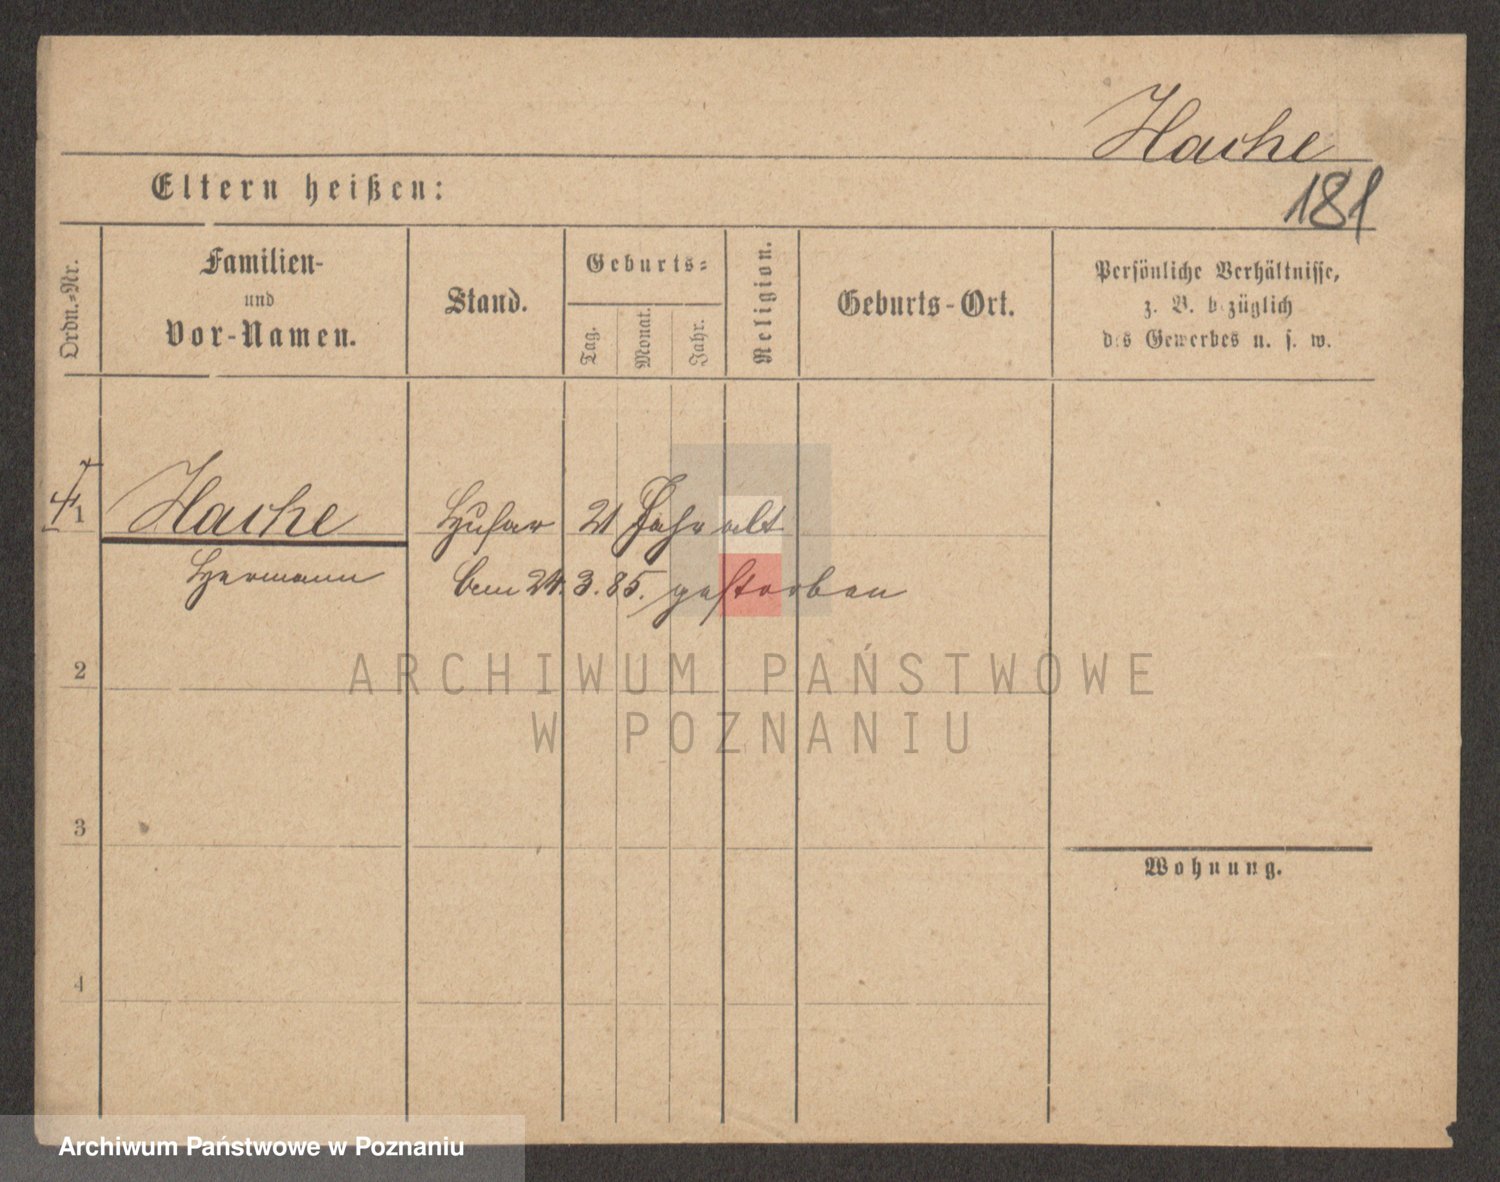 Hache
181
Eltern heißen:
Ordn.-Nr.
Familien-
und
Vor-Namen.
Stand.
Geburts-
Tag.
Monat.
Jahr.
Religion.
Geburts-Ort.
Persönliche Verhältnisse,
z. B. bezüglich
des Gewerbes u. s. w.
1
Hache
Hermann
Husar 21 Jahr alt
24.3.85. gestorben
2
ARCHIWUM PAŃSTWOWE
W POZNANIU
3
Wohnung.
4
Archiwum Państwowe w Poznaniu